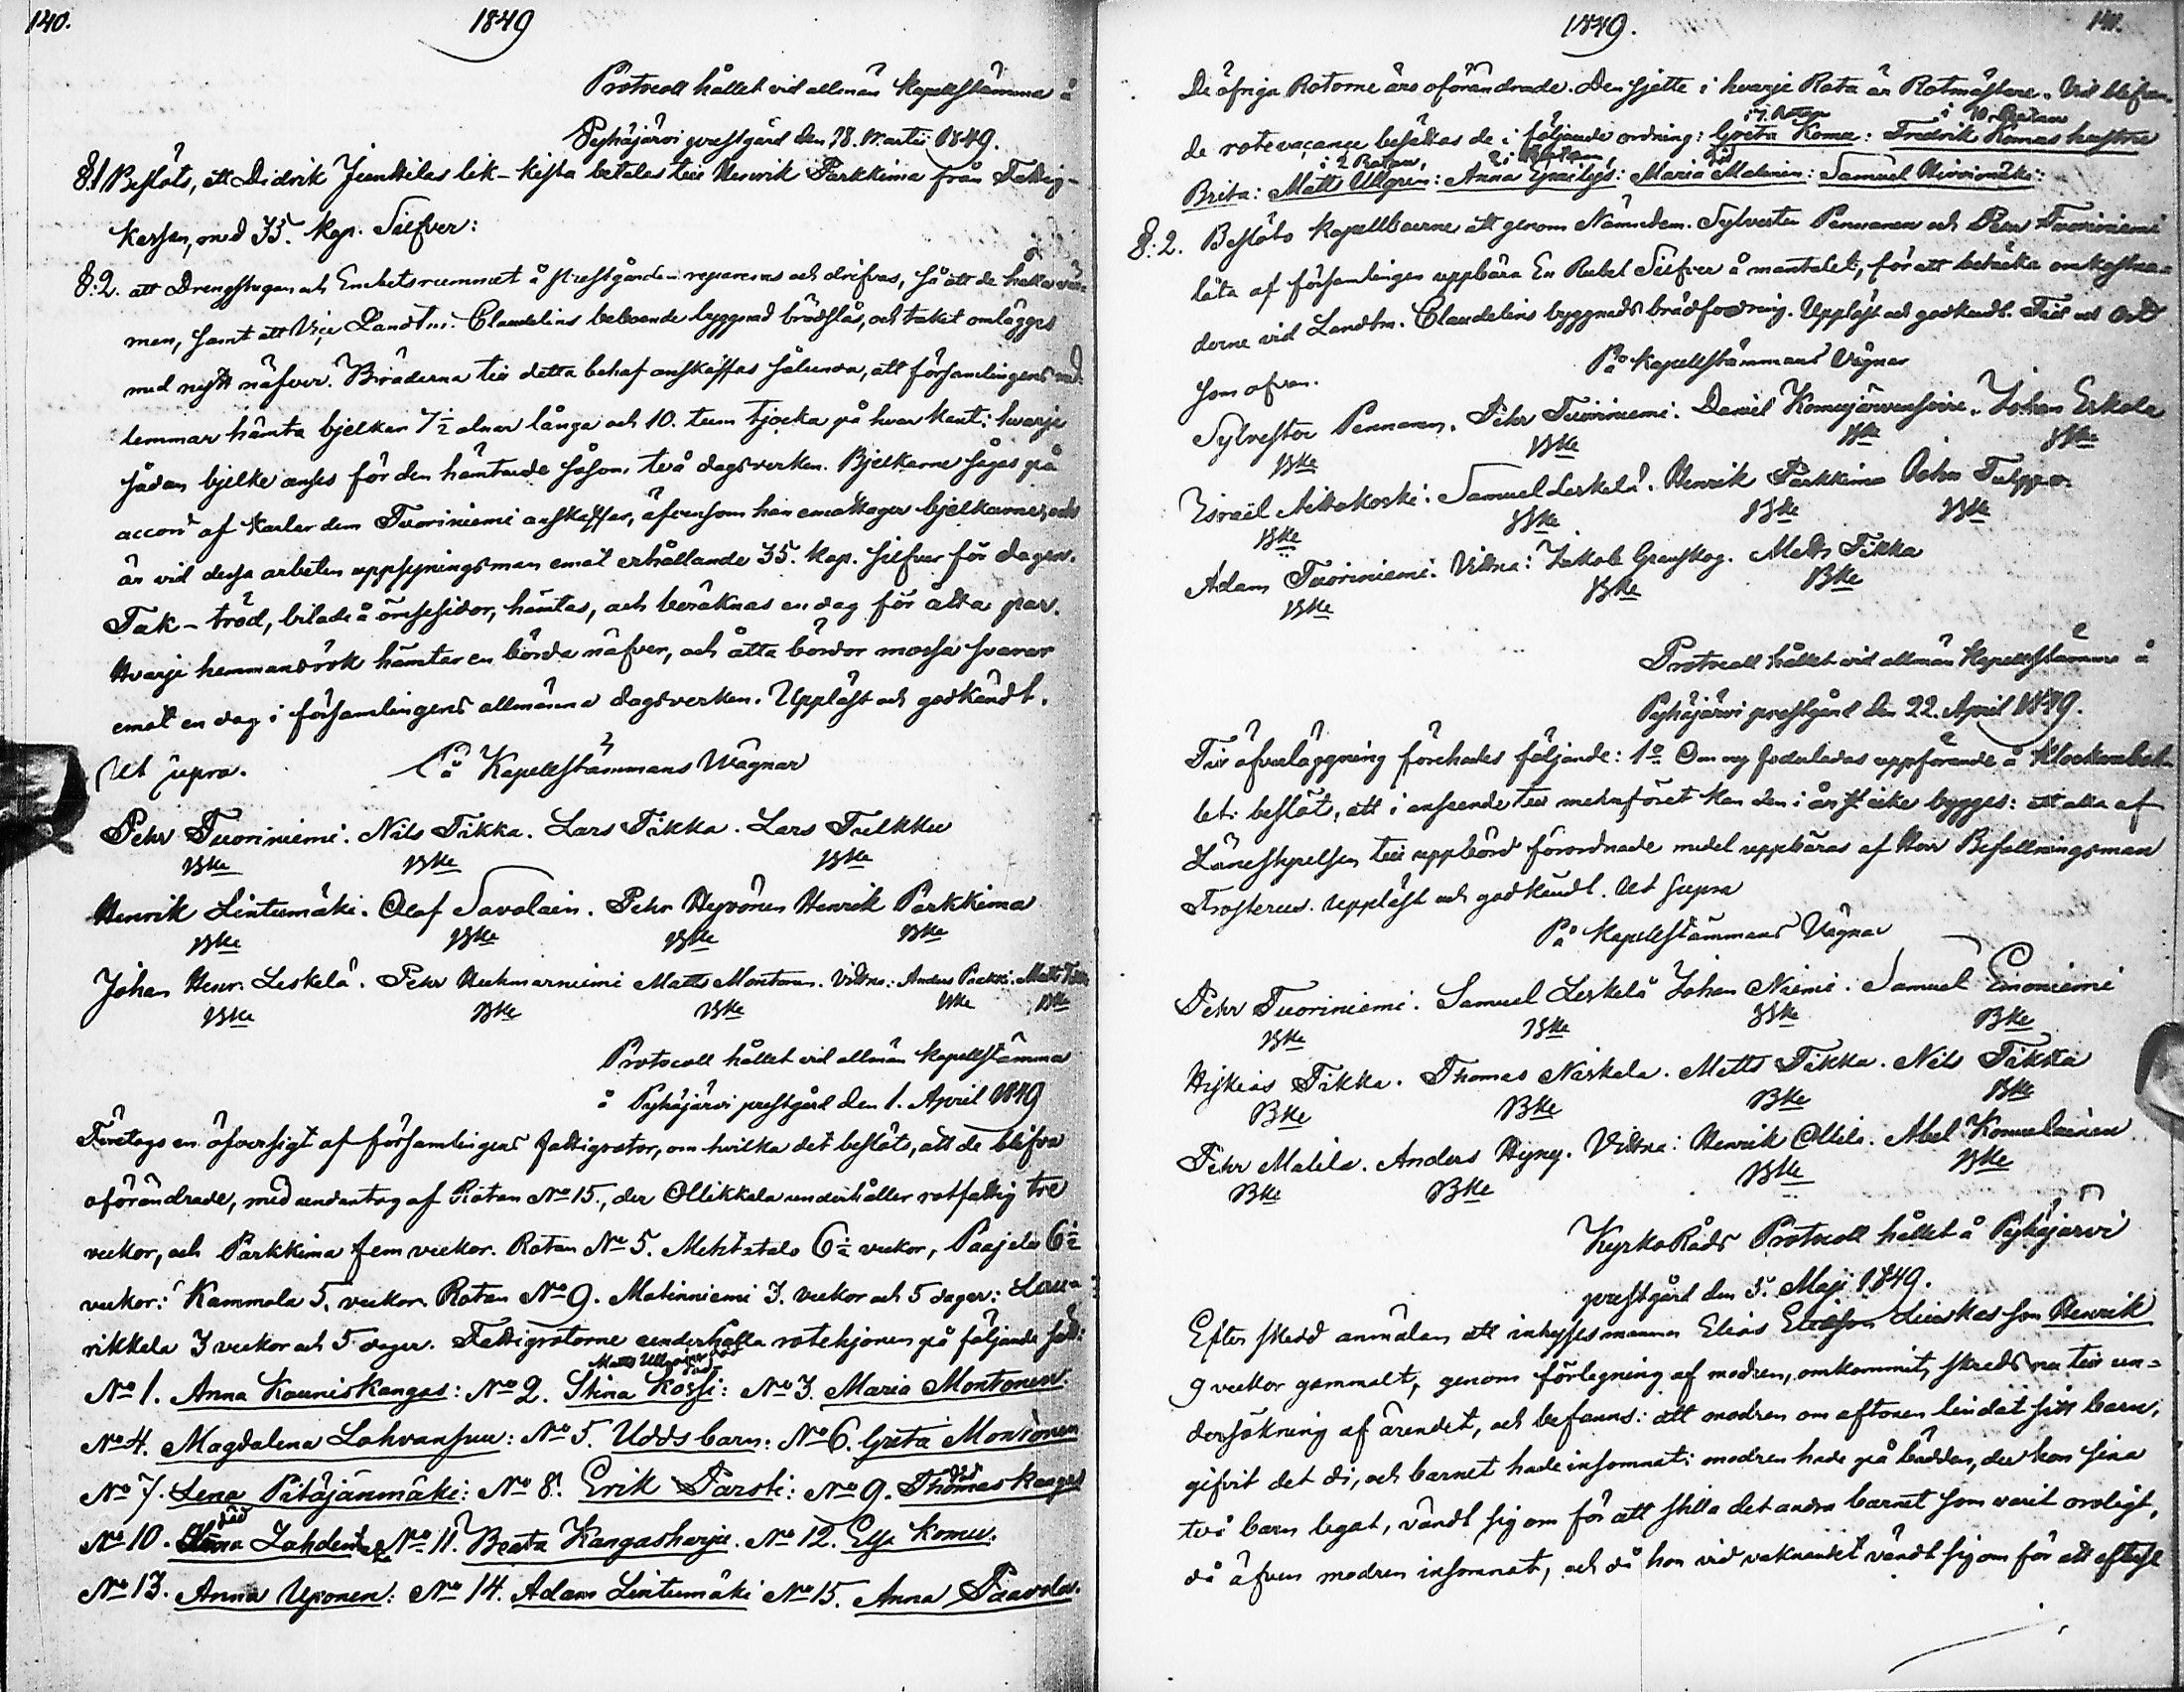 140.
1849
Protocoll hållet vid allmän Kapellstämma å
Pyhäjärvi prestgård den 18. Martii 1849.
§.1 Beslöts, att Didrik Junttilas lik-kista betales till Henrik Parkkima från Fattig-
kassan, med 35. kop. Silfver:
§:2. att Drengstugan och Embetsrummet å Prestgården repareras och drifvas, så att de hållas var-
men, samt att Vice Landtm. Claudelins beboende byggnad brädslås, och taket omlägges
med nytt näfver. Bräderna till detta behof anskaffas sålunda, att församlingens med-
lemmar hämta bjelkar 7½ alnar långa och 10. tum tjocka på hvar kant: hvarje
sådan bjelke anses för den hämtande såsom två dagsverken. Bjelkarne sågas på
accord af Karlar dem Tuoriniemi anskaffar, äfvensom han emottager bjelkarne, och
är vid dessa arbeten uppsyningsman emot erhållande 35. kop. silfver för dagen.
Tak-tröd, bilade å ömsesidor, hämtas, och beräknas en dag för åtta par.
Hvarje hemmansrök hämtar en börda näfver, och åtta bördor mossa svarar
emot en dag i församlingens allmänna dagsverken. Uppläst och godkändt.
Ut supra. På Kapellstämmans Wägnar
Pehr Tuoriniemi. Nils Tikka. Lars Tikka. Lars Tulkku
Bke Bke Bke
Henrik Lintumäki. Olof Savolain. Pehr Hyvönen Henrik Parkkima
Bke Bke Bke Bke
Johan Henr. Leskelä. Pehr Huhmarniemi Matts Montonen. Vittna: Anders Matts
Bke Bke Bke Bke Bke
Protocoll hållet vid allmän Kapellstämma
å Pyhäjärvi prestgård den 1. April 1849
Företogs en öfversigt af församlingens fattigrotor, om hvilka det beslöts, att de blifva
oförändrade, med undantag af Rotan No 15., der Ollikkala underhåller rotfattig tre
veckor, och Parkkima fem veckor. Rotan No 5. Mehtätalo 6½ veckor, Paajala 6½
veckor: Kammola 5. veckor. Rotan No 9. Matinniemi 3. veckor och 5 dagar: Lau-
rikkala 3 veckor och 5 dagar. Fattigrotorne underhålla rotehjonen på följande sätt:
Matts Ullgren död
No 1. Anna Kauniskangas: No 2. Stina Kossi: No 3. Maria Montonen.
No 4. Magdalena Lahvansuu: No 5. Udds barn: No 6. Greta Montonen
död
No 7. Lena Pitäjänmäki: No 8. Erik Parsti: No 9. Thomas Kangas
död
No 10. Lahden No 11. Beata Kangasharju. No 12. Elsa Komu.
No 13. Anna Uponen: No 14. Adam Lintumäki No 15. Anna Paavola.
1849.
141.
De öfriga Rotorne äro oförändrade. Den sjette i hvarje Rota är Rotmästare. Vid blifvan-
i 7. Rotan i 10. Rotan
de rotevacance besättas de i följande ordning: Greta Komu: Fredrik Komas hustru
i 2 Rotan, död
Brita: Matts Ullgren: Anna: Maria Malinin: Samuel
§:2. Beslöto Kapellboerne att genom Nämndem. Sylvester Pennanen och Pehr Tuoriniemi
låta af församlingen uppbära En Rubel Silfver å mantalet, för att betäcka omkostna-
derne vid Landtm. Claudelins byggnads brädfodring. Uppläst och godkändt. Tid och Ort
som ofvan. På Kapellstämmans Vägnar
Sylvester Pennanen. Pehr Tuoriniemi. Daniel Komujärvensivu. Johan Eskola
Bke Bke Bke Bke
Esraël Aittokoski. Samuel Leskelä. Henrik Parkkima Johan Tulppo.
Bke Bke Bke Bke
Adam Tuoriniemi. Vittna: Jakob Granskog. Matts Tikka
Bke Bke Bke
Protocoll hållet vid allmän Kapellstämma å
Pyhäjärvi prestgård den 22. April 1849.
Till öfverläggning förehades följande: 1o Om ny foderladas uppförande å Klockarebohl-
let: beslöts, att i anseende till menföret kan den i år ej icke bygges: att alla af
Länestyrelsen till uppbörd förordnade medel uppbäras af Herr Befallningsman
Frosterus. Uppläst och godkändt. Ut supra
På Kapellstämmans Vägnar
Pehr Tuoriniemi. Samuel Leskelä Johan Niemi. Samuel Emoniemi
Bke Bke Bke Bke
Hiskias Tikka. Thomas Niskala. Matts Tikka. Nils Tikka
Bke Bke Bke Bke
Pehr Malila. Anders Hyny. Vittna: Henrik Ollila. Abel Komulainen
Bke Bke Bke Bke
KyrkoRåds Protocoll hållet å Pyhäjärvi
prestgård den 5. Maji 1849.
Efter skedd anmälan att inhysesmannen Elias Leiviskas son Henrik
9 veckor gammalt, genom förlegning af modren, omkommit, skreds nu till un-
dersökning af ärendet, och befanns: att modren om aftonen lindat sitt barn,
gifvit det di, och barnet hade insomnat: modren hade på bädden, der hon sina
två barn legat, vändt sig om för att stilla det andra barnet som varit oroligt,
då äfven modren insomnat, och då hon vid vaknandet vändt sig om för att efterse